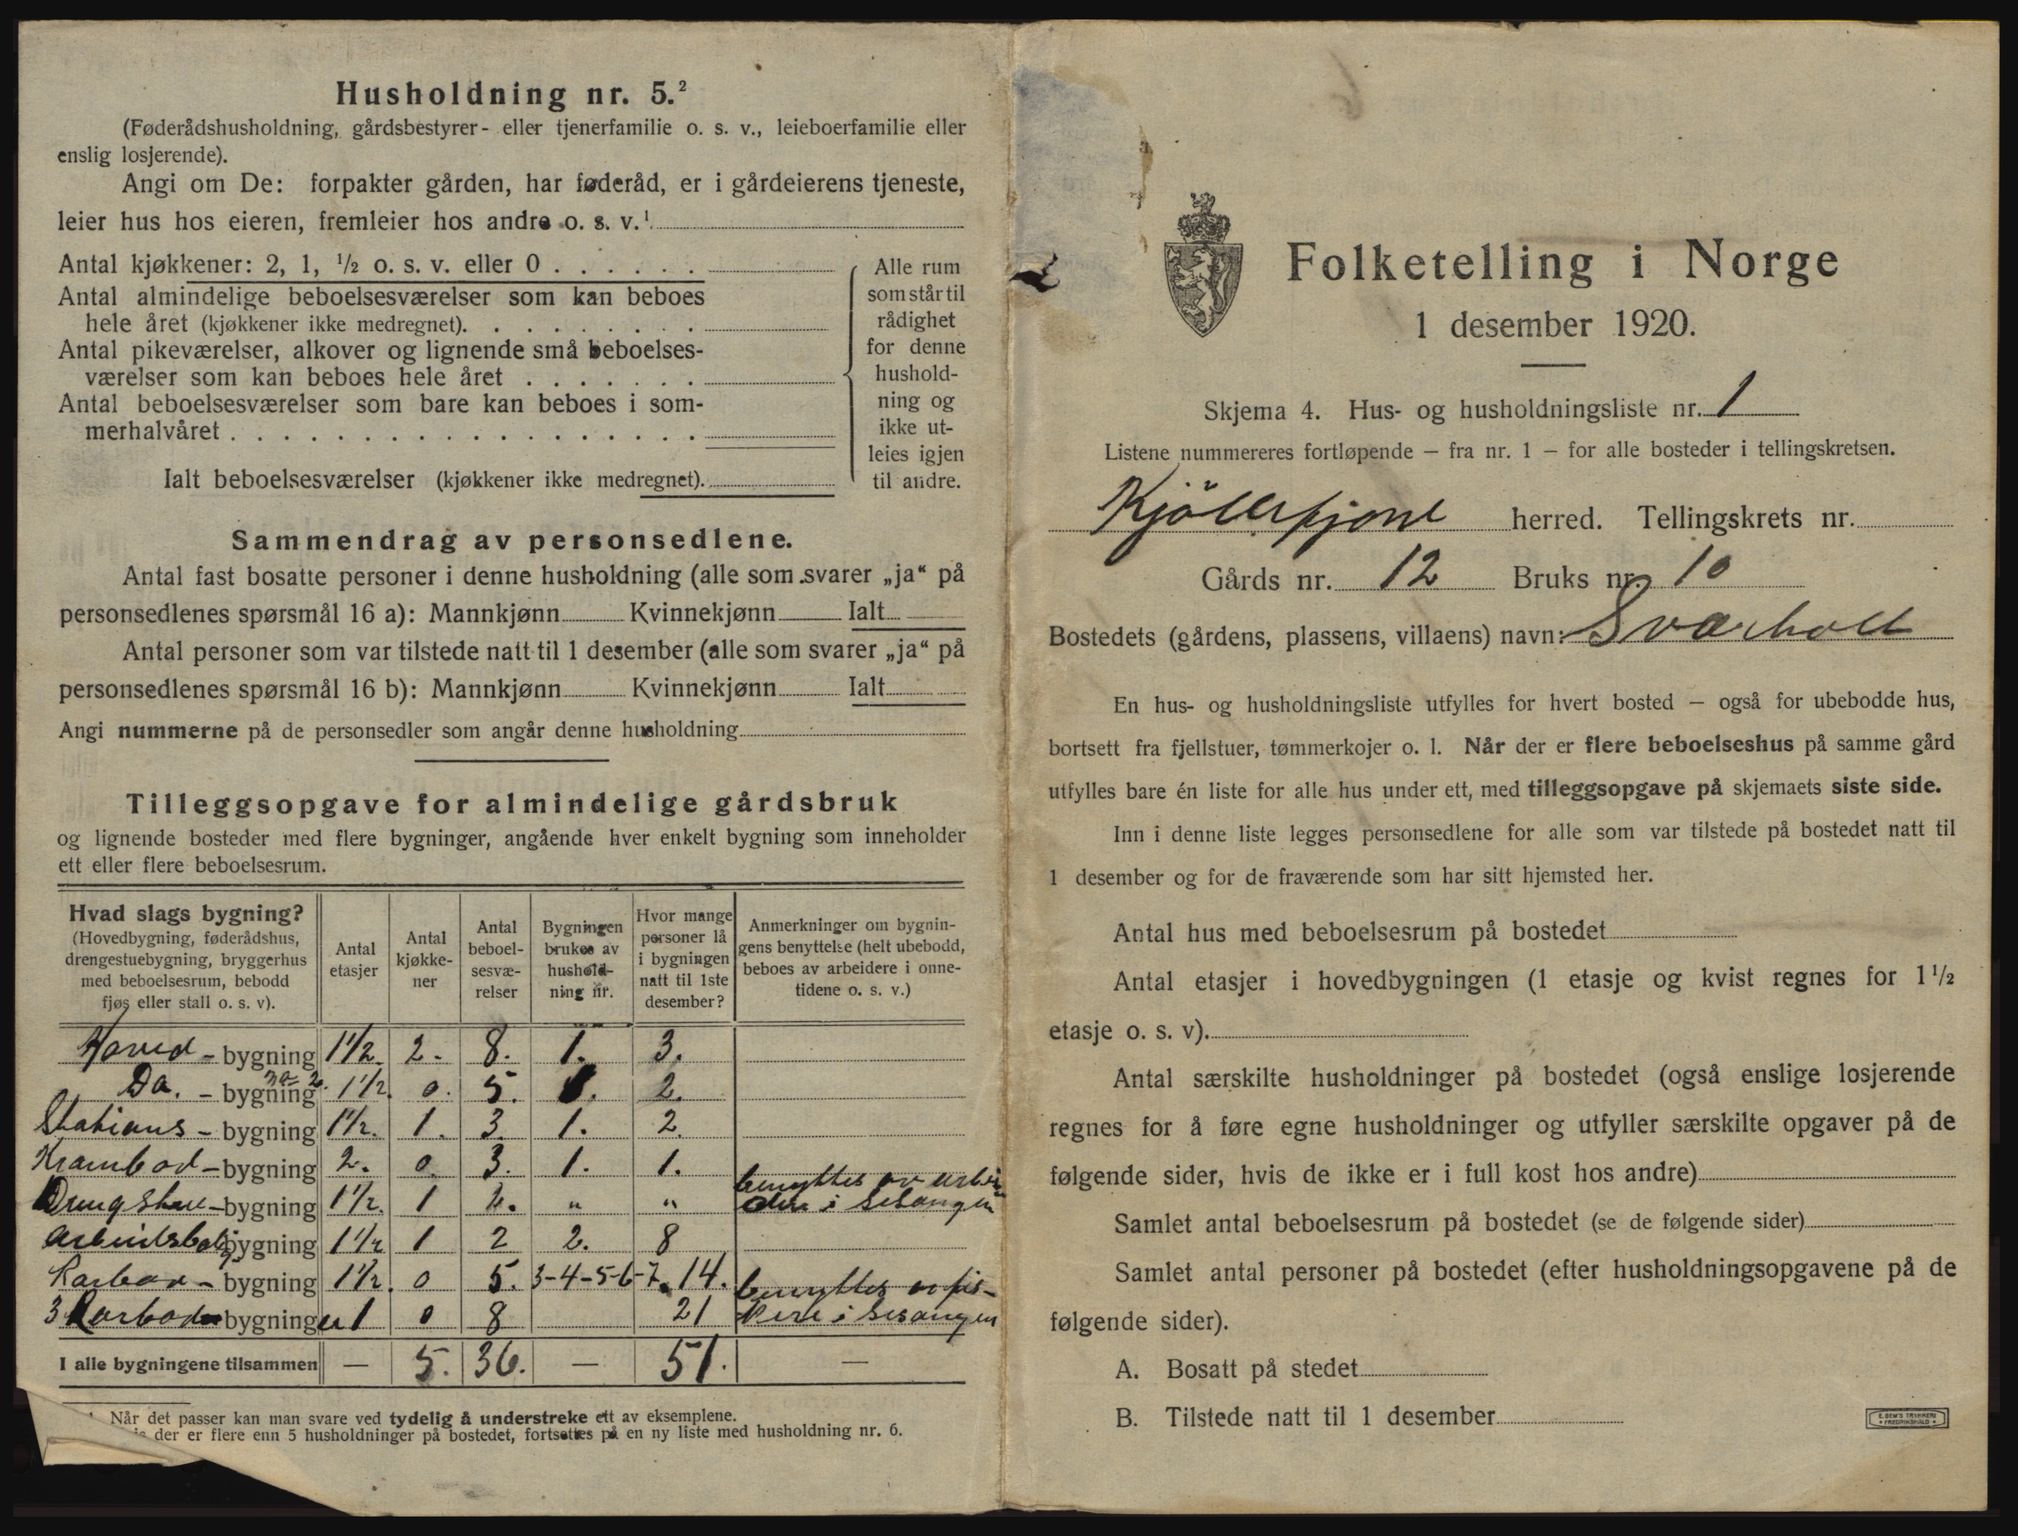 Husholdning nr. 5.²
(Føderådshusholdning, gårdsbestyrer- eller tjenerfamilie o. s. v., leieboerfamilie eller
enslig losjerende).
Angi om De: forpakter gården, har føderåd, er i gårdeierens tjeneste,
leier hus hos eieren, fremleier hos andre o. s. v.¹
Antal kjøkkener: 2, 1, ½ o. s. v. eller 0 . . . . . .
Antal almindelige beboelsesværelser som kan beboes
hele året (kjøkkener ikke medregnet). . . . . . . . .
Antal pikeværelser, alkover og lignende små beboelses-
værelser som kan beboes hele året . . . . . . .
Antal beboelsesværelser som bare kan beboes i som-
merhalvåret . . . . . . . . . . . . . . . . . .
Ialt beboelsesværelser (kjøkkener ikke medregnet).
Alle rum
som står til
rådighet
for denne
hushold-
ning og
ikke ut-
leies igjen
til andre.
Sammendrag av personsedlene.
Antal fast bosatte personer i denne husholdning (alle som svarer „ja“ på
personsedlenes spørsmål 16 a): Mannkjønn Kvinnekjønn Ialt
Antal personer som var tilstede natt til 1 desember (alle som svarer „ja“ på
personsedlenes spørsmål 16 b): Mannkjønn Kvinnekjønn Ialt
Angi nummerne på de personsedler som angår denne husholdning
Tilleggsopgave for almindelige gårdsbruk
og lignende bosteder med flere bygninger, angående hver enkelt bygning som inneholder
ett eller flere beboelsesrum.
Hvad slags bygning?
(Hovedbygning, føderådshus,
drengestuebygning, bryggerhus
med beboelsesrum, bebodd
fjøs eller stall o. s. v).
Antal
etasjer
Antal
kjøkke-
ner
Antal
beboel-
sesvæ-
relser
Bygningen
brukes av
hushold-
ning nr.
Hvor mange
personer lå
i bygningen
natt til 1ste
desember?
Anmerkninger om bygnin-
gens benyttelse (helt ubebodd,
beboes av arbeidere i onne-
tidene o. s. v.)
Hoved - bygning 1½. 2. 8. 1. 3.
Do. - bygning no 2. 1½. 0. 5. 1. 2.
Stations - bygning 1½. 1. 3. 1. 2.
Krambod - bygning 2. 0. 3. 1. 1.
Drengstue - bygning 1½. 1 2. " " benyttes av arbei-dere i sesongen
Arbeidsbolig bygning 1½ 1 2 2. 8
Rorbod - bygning 1½. 0 5. 3-4-5-6-7. 14.
3 Rorboder bygninger 1 0 8 21 benyttes av fis-kere i sesongen
I alle bygningene tilsammen — 5. 36. — 51. —
1. Når det passer kan man svare ved tydelig å understreke ett av eksemplene.
der er flere enn 5 husholdninger på bostedet, fortsettes på en ny liste med husholdning nr. 6.
Folketelling i Norge
1 desember 1920.
Skjema 4. Hus- og husholdningsliste nr. 1
Listene nummereres fortløpende – fra nr. 1 – for alle bosteder i tellingskretsen.
Kjöllefjord herred. Tellingskrets nr.
Gårds nr. 12 Bruks nr. 10
Bostedets (gårdens, plassens, villaens) navn: Sværholt
En hus- og husholdningsliste utfylles for hvert bosted – også for ubebodde hus,
bortsett fra fjellstuer, tømmerkojer o. l. Når der er flere beboelseshus på samme gård
utfylles bare én liste for alle hus under ett, med tilleggsopgave på skjemaets siste side.
Inn i denne liste legges personsedlene for alle som var tilstede på bostedet natt til
1 desember og for de fraværende som har sitt hjemsted her.
Antal hus med beboelsesrum på bostedet
Antal etasjer i hovedbygningen (1 etasje og kvist regnes for 1½
etasje o. s. v).
Antal særskilte husholdninger på bostedet (også enslige losjerende
regnes for å føre egne husholdninger og utfyller særskilte opgaver på de
følgende sider, hvis de ikke er i full kost hos andre)
Samlet antal beboelsesrum på bostedet (se de følgende sider)
Samlet antal personer på bostedet (efter husholdningsopgavene på de
følgende sider).
A. Bosatt på stedet
B. Tilstede natt til 1 desember
E. SEM'S TRYKKERI
FREDRIKSHALD